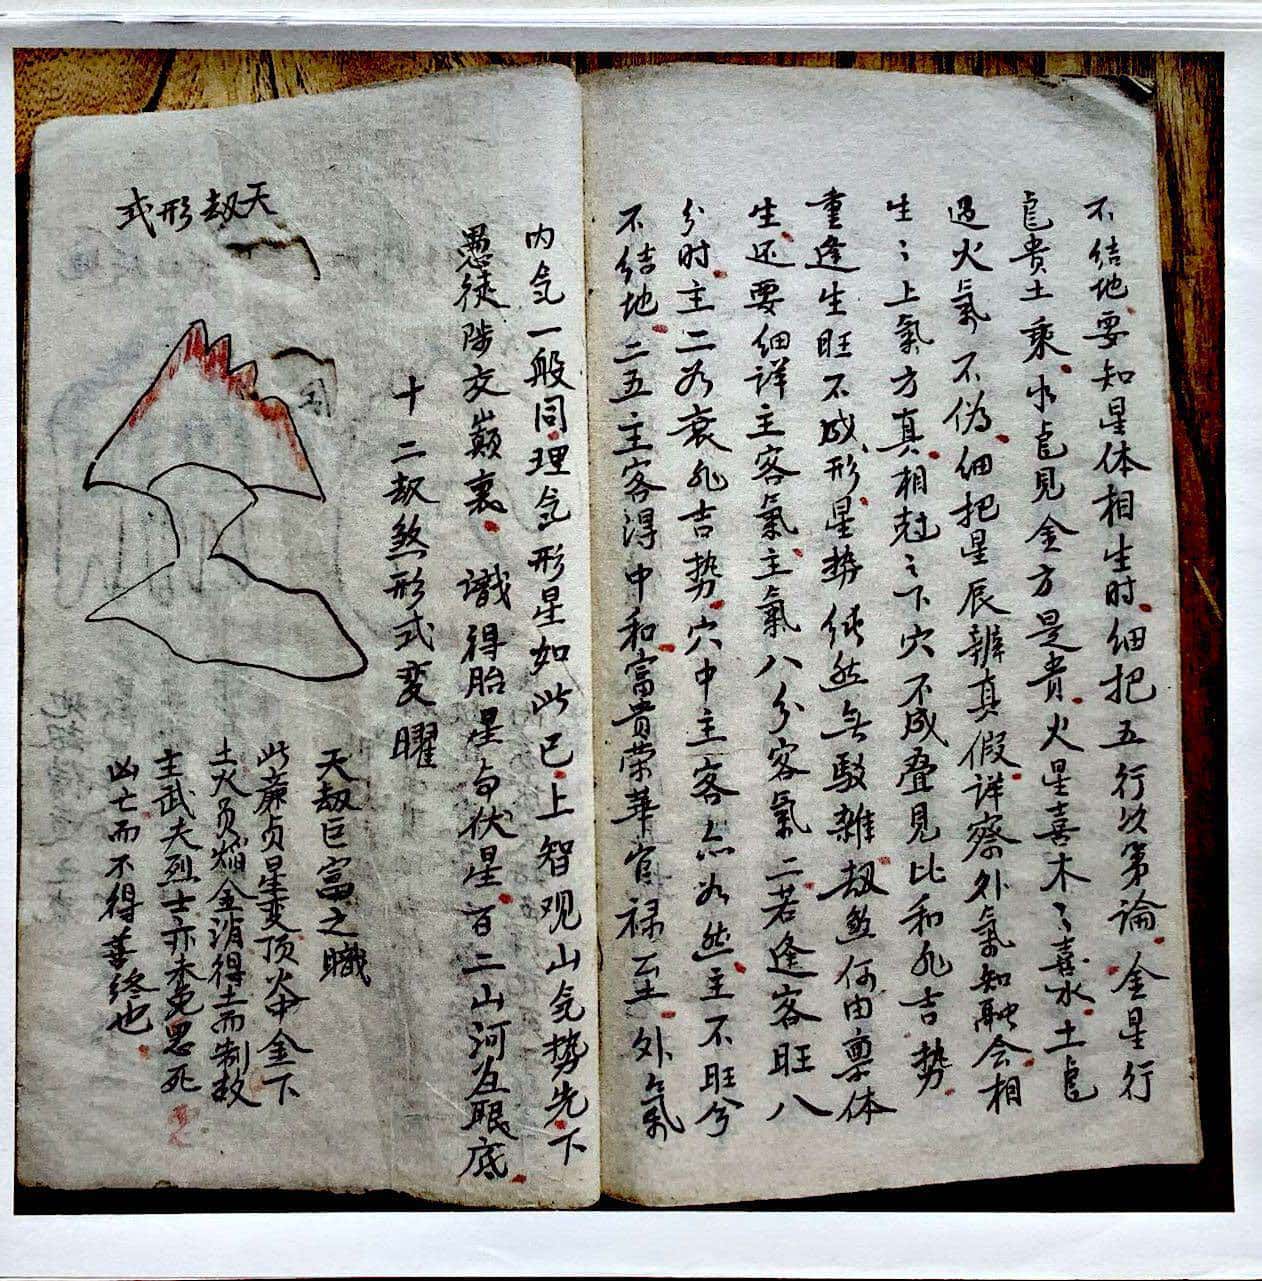 不结地要知星体相生时细把五行次第论金星行
邑贵土乘水邑见金方是贵火星喜木〻喜水土邑
遇火氣不伪细把星辰辨真假详察外氣知融会相
生〻上氣方真相尅〻下穴不成叠见比和非吉势
重逢生旺不成形星势纯然无驳雜劫煞何由禀体
生还要细详主客氣主氣八分客氣二若逢客旺八
分时主二为衰非吉势穴中主客亦为然主不旺兮
不结地二五主客得中和富貴荣華官禄至外氣
内气一般同理气形星如此已上智观山气势先下
愚徒涉交巅裏識得胎星与伏星百二山河在眼底
十二劫煞形式变曜
天劫形式
天劫巨富之職
此廉贞星变顶火中金下
土火员焰金消得土而制故
主武夫烈士亦未免恶死
凶亡而不得善终也